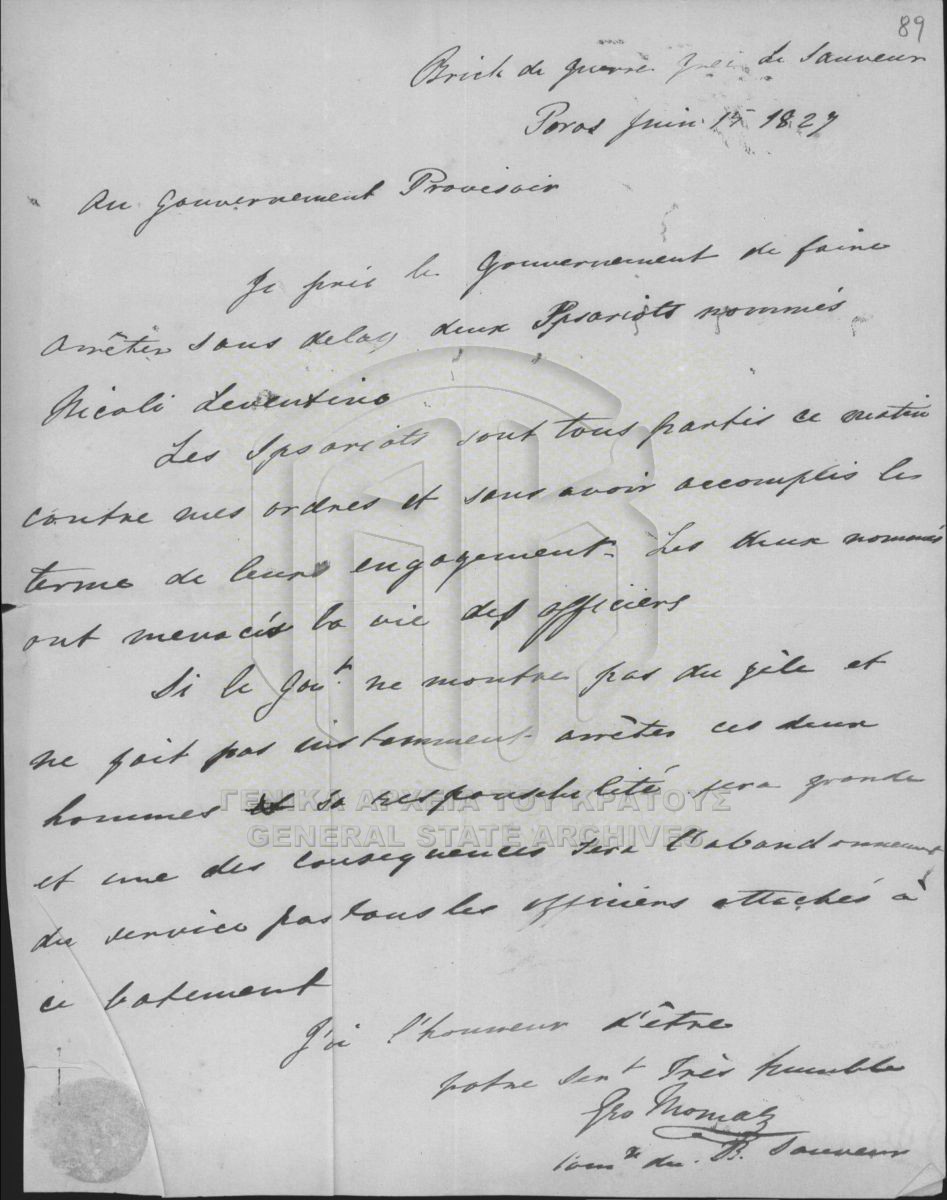 89
Brick de guerre grec Le Sauveur
Poros Juin 15 1827
Au Gouvernement Provisoir
Je prie le Gouvernement de faire
arrêter sans delay deux Ipsariots nommés
Nicoli Leventino
Les Ipsariots sont tous partis ce matin
contre mes ordres et sans avoir accomplis les
terme de leurs engagement. Les deux nommés
ont menacés la vie des officiers
Si le Gout. ne montre pas du zèle et
ne fait pas instamment arrêter ces deux
hommes sa responsibilité sera grande
et une des consequences sera l'abandonnement
du service par tous les officiers attachés à
ce batement
J'ai l'honneur d'être
votre sert Très humble
Geo
comre du B. Sauveur
ΓΕΝΙΚΑ ΑΡΧΕΙΑ ΤΟΥ ΚΡΑΤΟΥΣ
GENERAL STATE ARCHIVES